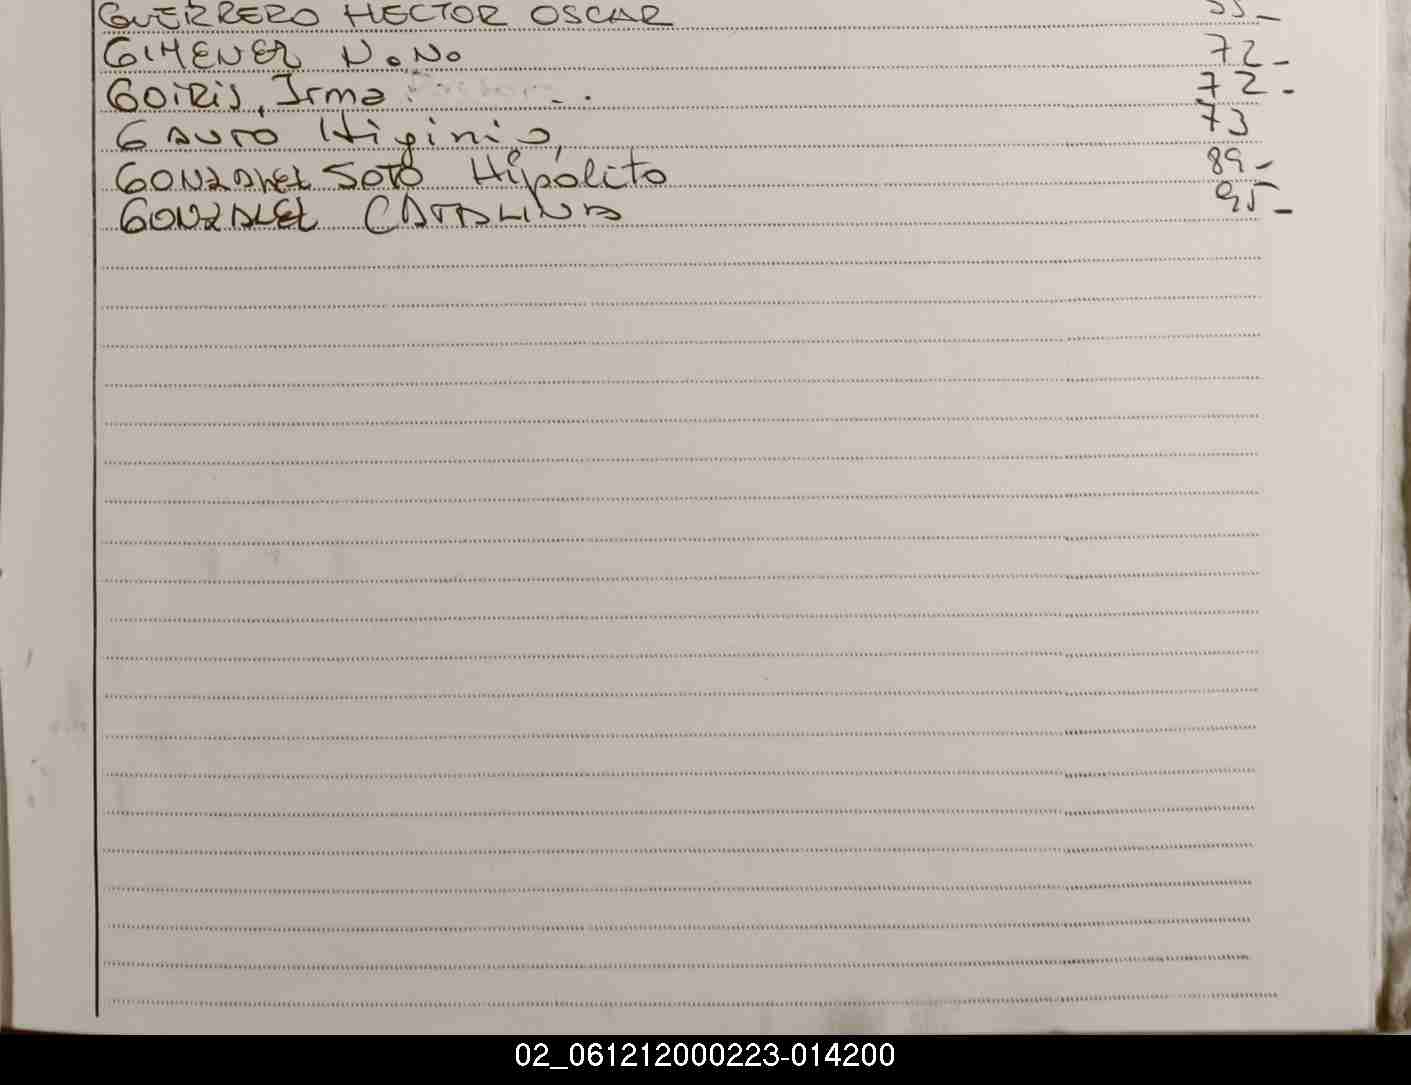 GUERRERO HECTOR OSCAR 55_
GIMENEZ N.No 72_
GOIRIS, Irma. 72-
GAUTO Higinio, 73
GONZALEZ SOTO Hipólito 89-
GONZALEZ CATALINA 95_
02_061212000223-014200